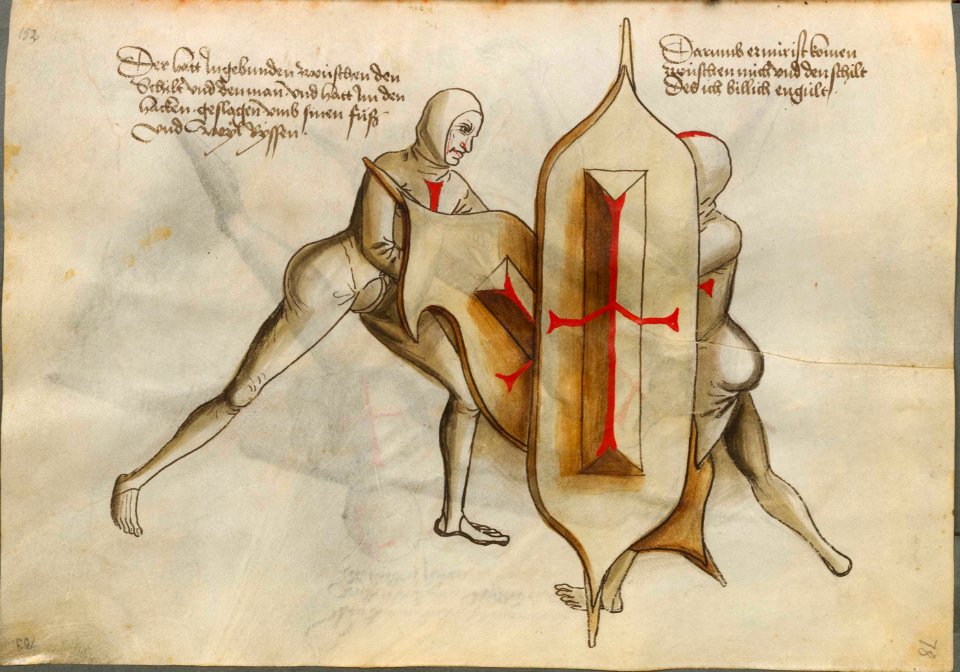 152
Der hatt Ingebunden zwüschen den
Schilt und den man und hatt Im den
hacken geslagen umb sinen füß
Und Weyl Ryssen
Darumb er mir ist komen
zwüschen mich und den schilt
Des ich billich engült
78